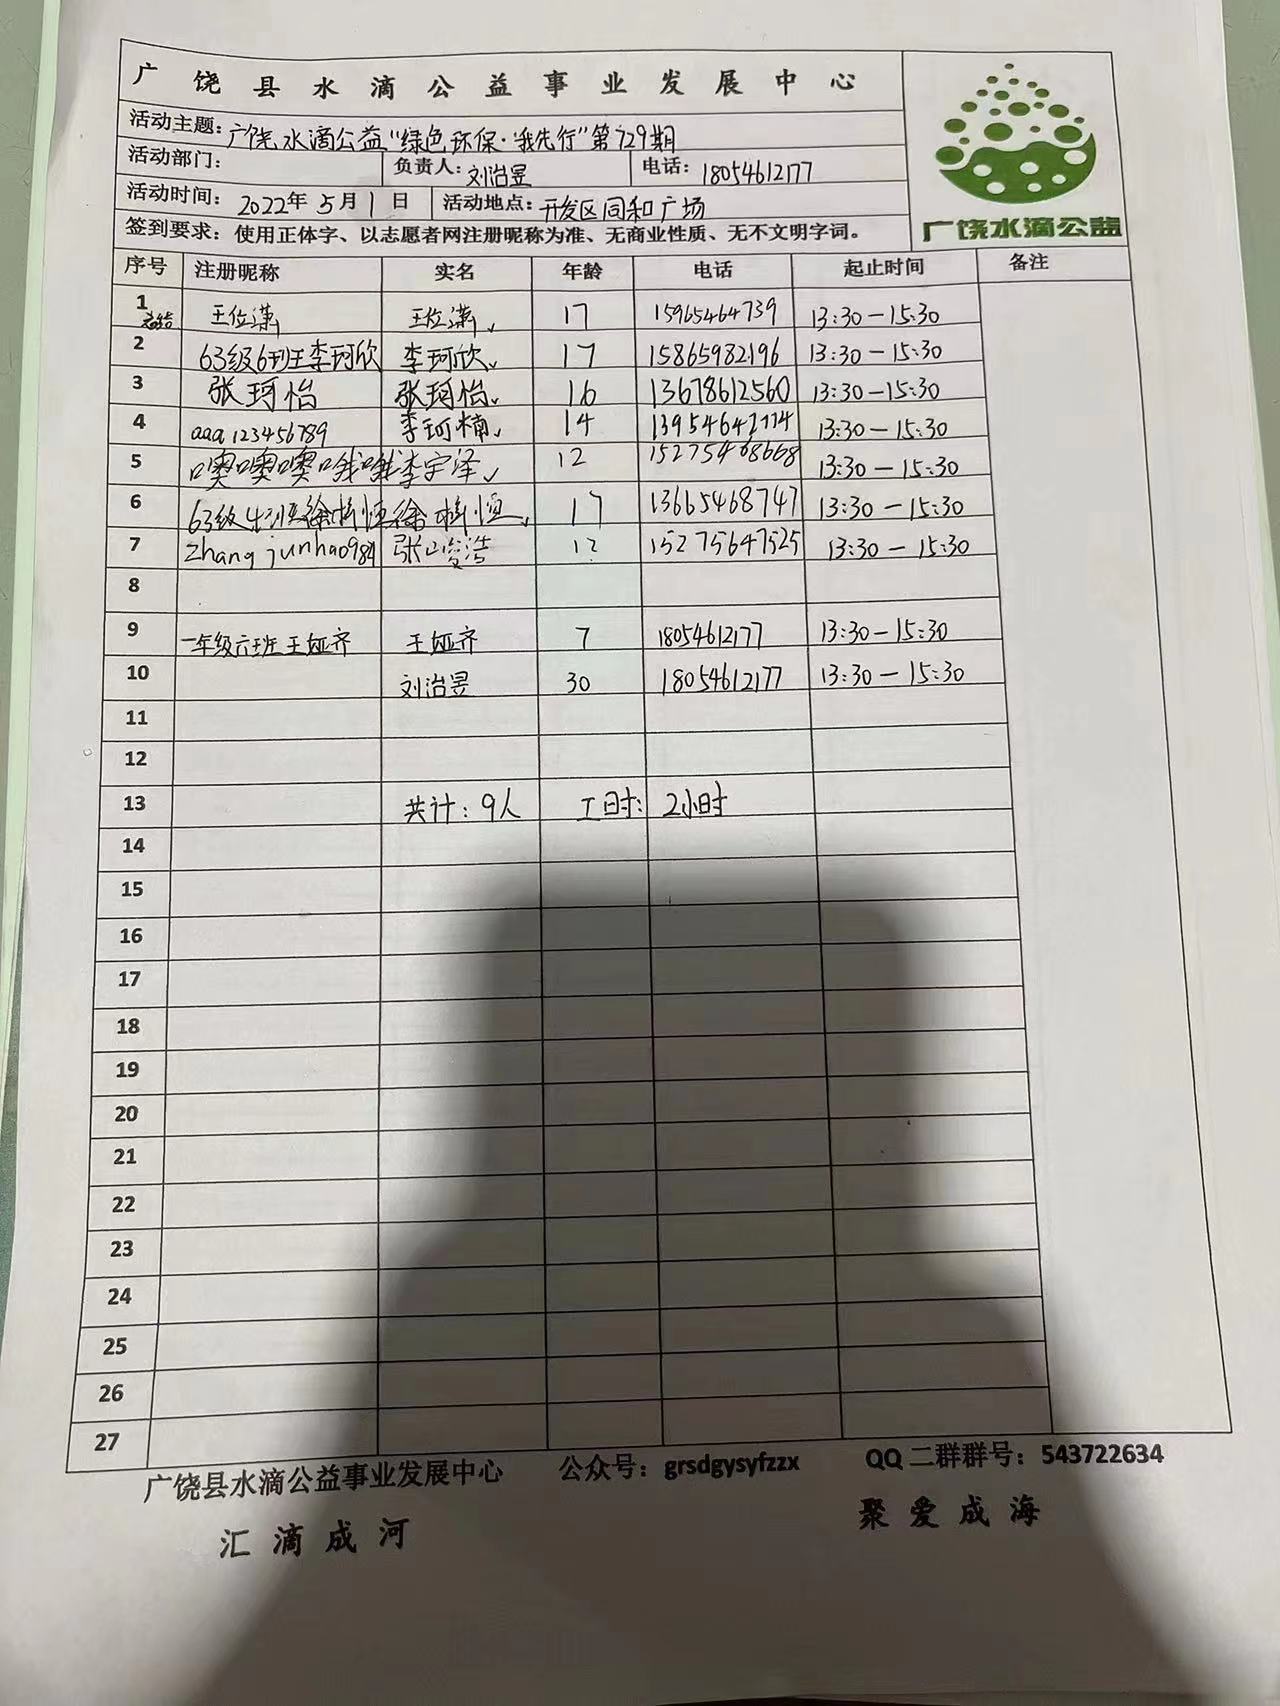 广饶县水滴公益事业发展中心
活动主题：广饶水滴公益"绿色环保·我先行"第729期
活动部门： 负责人：刘治昱 电话：18054612177
活动时间：2022年5月1日 活动地点：开发区同和广场
签到要求：使用正体字、以志愿者网注册昵称为准、无商业性质、无不文明字词。
广饶水滴公益
序号 注册昵称 实名 年龄 电话 起止时间 备注
1 总结 王位潇 王位潇 17 15965464739 13:30-15:30
2 63级6班王李珂欣 李珂欣 17 15865982196 13:30-15:30
3 张珂怡 张珂怡 16 13678612560 13:30-15:30
4 aaa123456789 李珂楠 14 13:30-15:30
5 噢噢噢哦哦 李宇泽 12 13:30-15:30
6 63级 徐 恒 徐 恒 17 13665468747 13:30-15:30
7 zhangjunhao984 张峻浩 12 15275647525 13:30-15:30
8
9 一年级六班王娅齐 王娅齐 7 18054612177 13:30-15:30
10 刘治昱 30 18054612177 13:30-15:30
11
12
13 共计：9人 工时：2小时
14
15
16
17
18
19
20
21
22
23
24
25
26
27
广饶县水滴公益事业发展中心 公众号：grsdgysyfzzx QQ二群群号：543722634
汇滴成河 聚爱成海